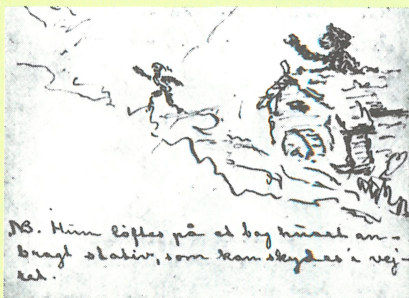 NB. Hun löftes på et bag huset an-
bragt stativ, som kan skydes i vej-
ret.